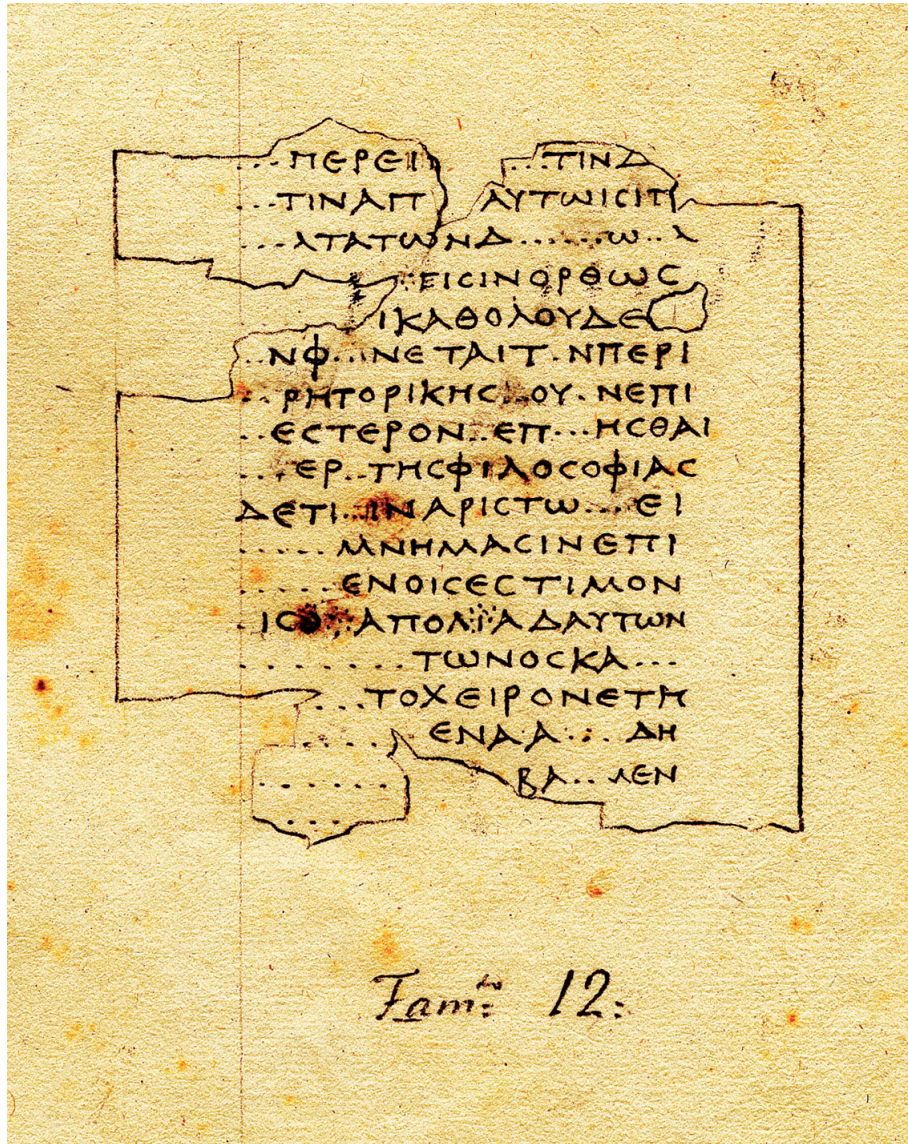 ...ΠΕΡΕΙΙ ...ΤΙΝΔ
...ΤΙΝΑΠ ΑΥΤΩΙCΙΤΙ
...ΑΤΑΤΩΝΔ......Ω..Λ
..ΕΙCΙΝΟΡΘΩC
ΙΚΑΘΟΛΟΥΔΕ
..ΝΦ...ΙΝΕΤΑΙΤ.ΝΠΕΡΙ
..ΡΗΤΟΡΙΚΗC...ΟΥ.ΝΕΠΙ
..ΕCΤΕΡΟΝ..ΕΠ...ΗCΘΑΙ
...ΕΡ..ΤΗCΦΙΛΟCΟΦΙΑC
ΔΕΤΙ..ΙΝΑΡΙCΤΩ....ΕΙ
.....ΜΝΗΜΑCΙΝΕΠΙ
.....ΕΝΟΙCΕCΤΙΜΟΝ
.ΙCΟ...ΑΠΟΛΙΑΔΑΥΤΩΝ
........ΤΩΝΟCΚΑ...
....ΤΟΧΕΙΡΟΝΕΤΗ
..... ΕΝΑ.Α... ΔΗ
...... ΒΑ..ΛΕΝ
....
Fam:to 12: